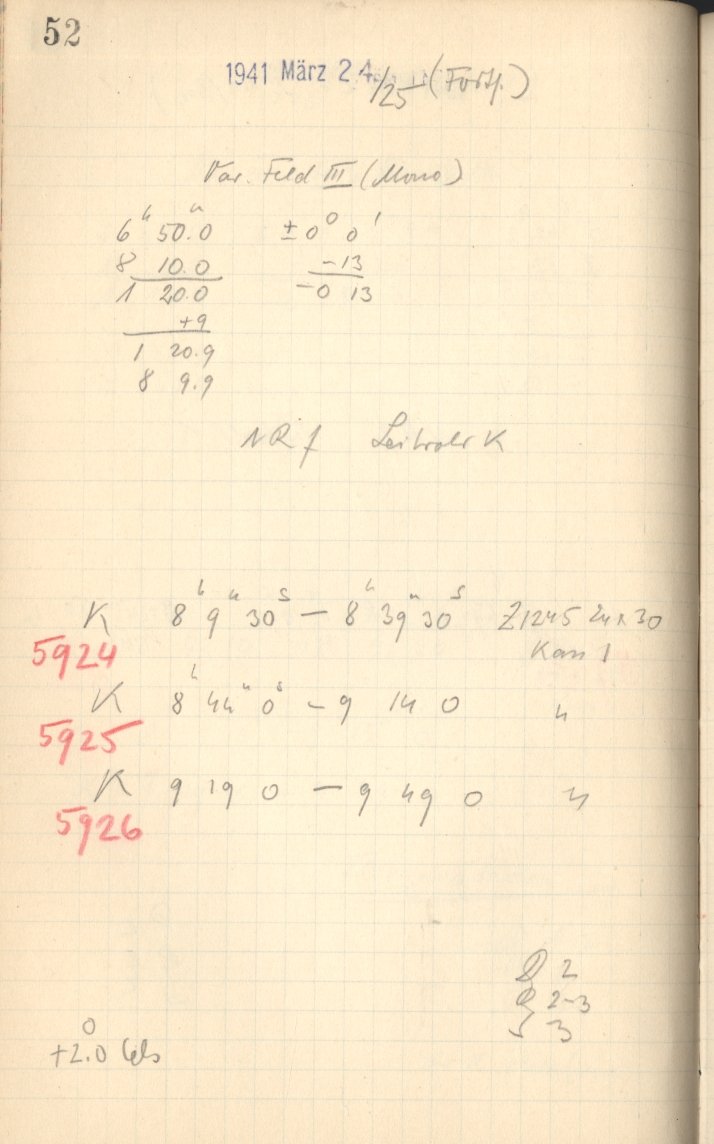 52
1941 März 24/25 (Forts.)
Var. Feld III (Mono)
6 h 50.0 m ± 0° 0'
8 10.0 -13
1 20.0 -0 13
+9
1 20.9
8 9.9
NRf Leitrohr K
K 8 h 9 m 30 s — 8 h 39 m 30 s Z1245 24x30
5924 Kass 1
K 8 h 44 m 0 s – 9 14 0 "
5925
K 9 19 0 — 9 49 0 "
5926
2
2-3
3
+2.0° Cels